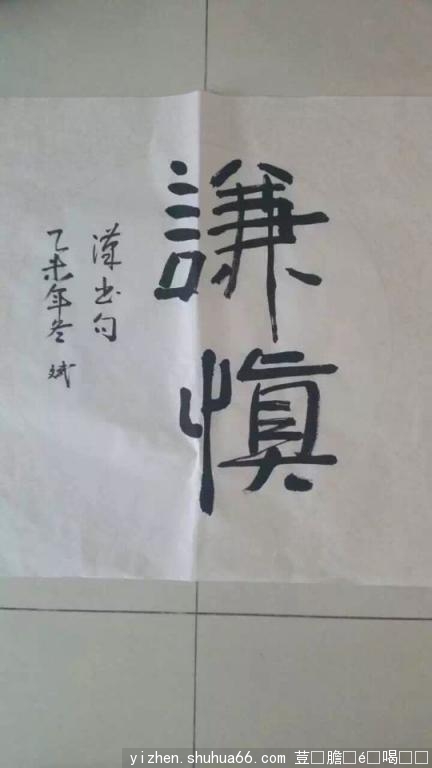 謙慎
漢书句
乙未年冬 斌
yizhen.shuhua66.com